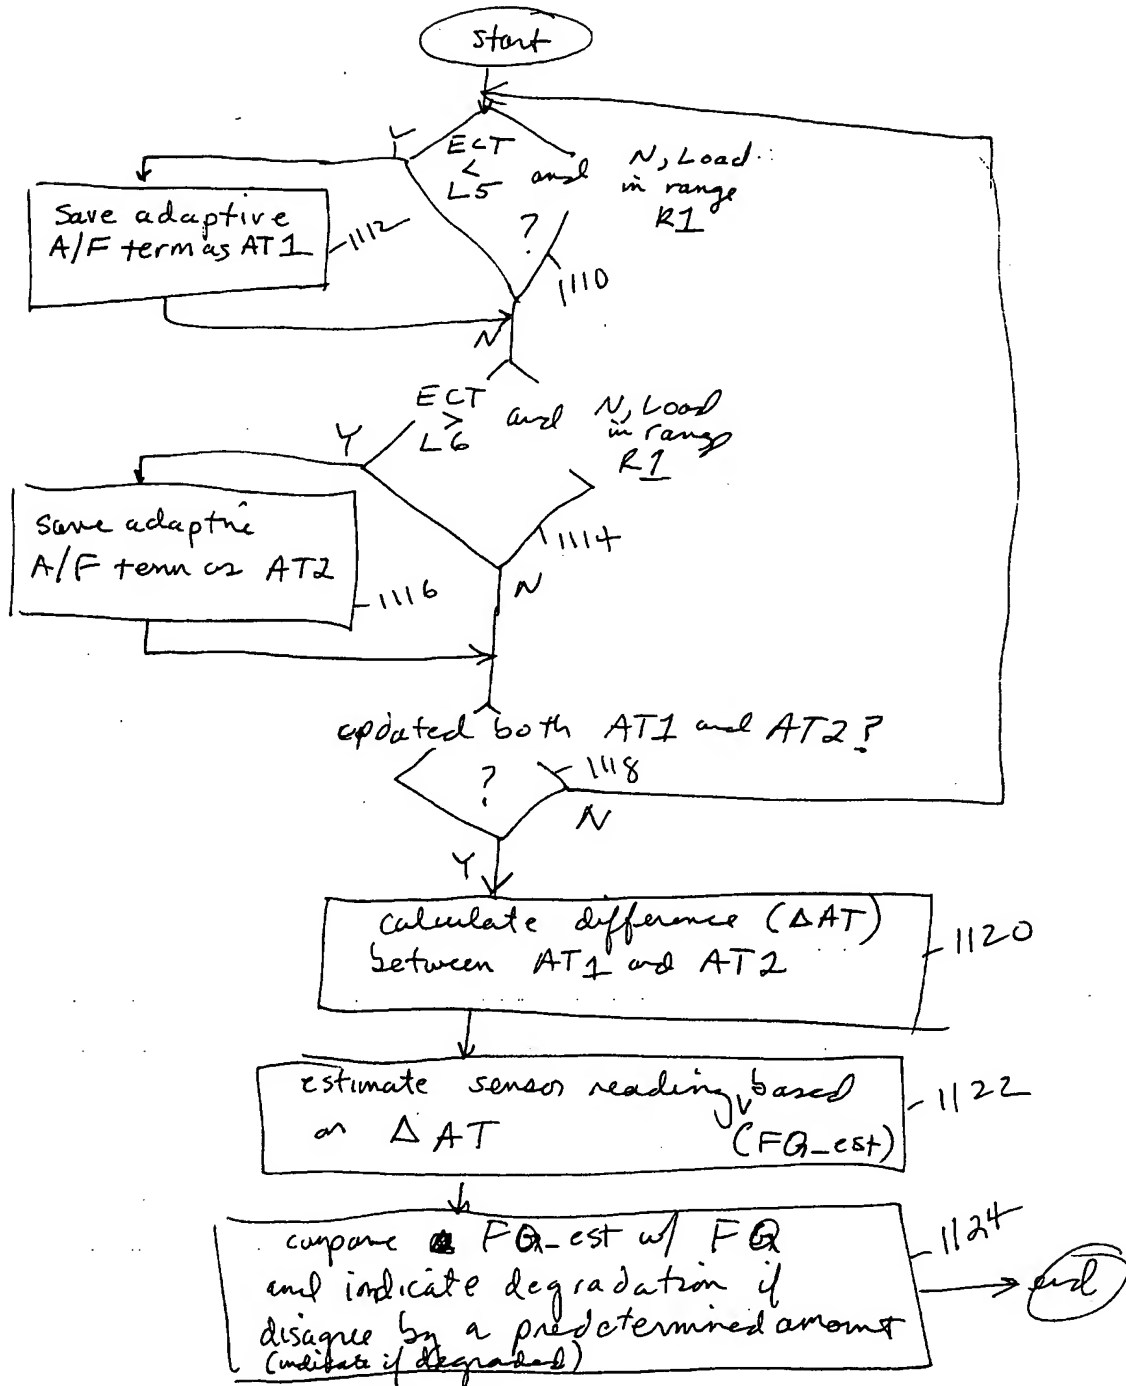 start
Y
ECT
<
L5 and
N, Load
in range
R1
?
1110
Save adaptive
A/F term as AT1
1112
N
ECT
>
L6 and
N, Load
in range
R1
Y
1114
save adaptive
A/F term as AT2
1116
N
updated both AT1 and AT2?
?
1118
N
Y
calculate difference (ΔAT)
between AT1 and AT2
1120
estimate sensor reading based
on ΔAT (FQ_est)
1122
compare FQ_est w/ FQ
and indicate degradation if
disagree by a predetermined amount
(indicate if degraded)
1124
end